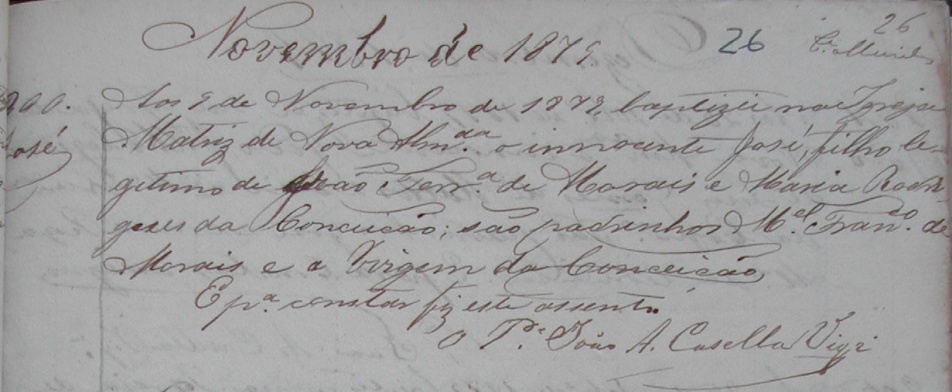 Novembro de 1879
26
26
200.
José
Aos 9 de Novembro de 1879, baptizei na Igreja
Matriz de Nova Alm.da o innocente José, filho le-
gitimo de João Ferr.a de Morais e Maria Rodri-
gues da Conceição; são padrinhos M.el Fran.co de
Morais e a Virgem da Conceição,
E p.a constar fiz este assento.
O P.e João A. Casella Vigr